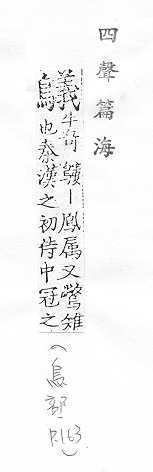 四聲篇海
義牛奇䥯丨鳳属又鷩雉
鳥也秦漢之初侍中冠之
(鳥部 P.163)